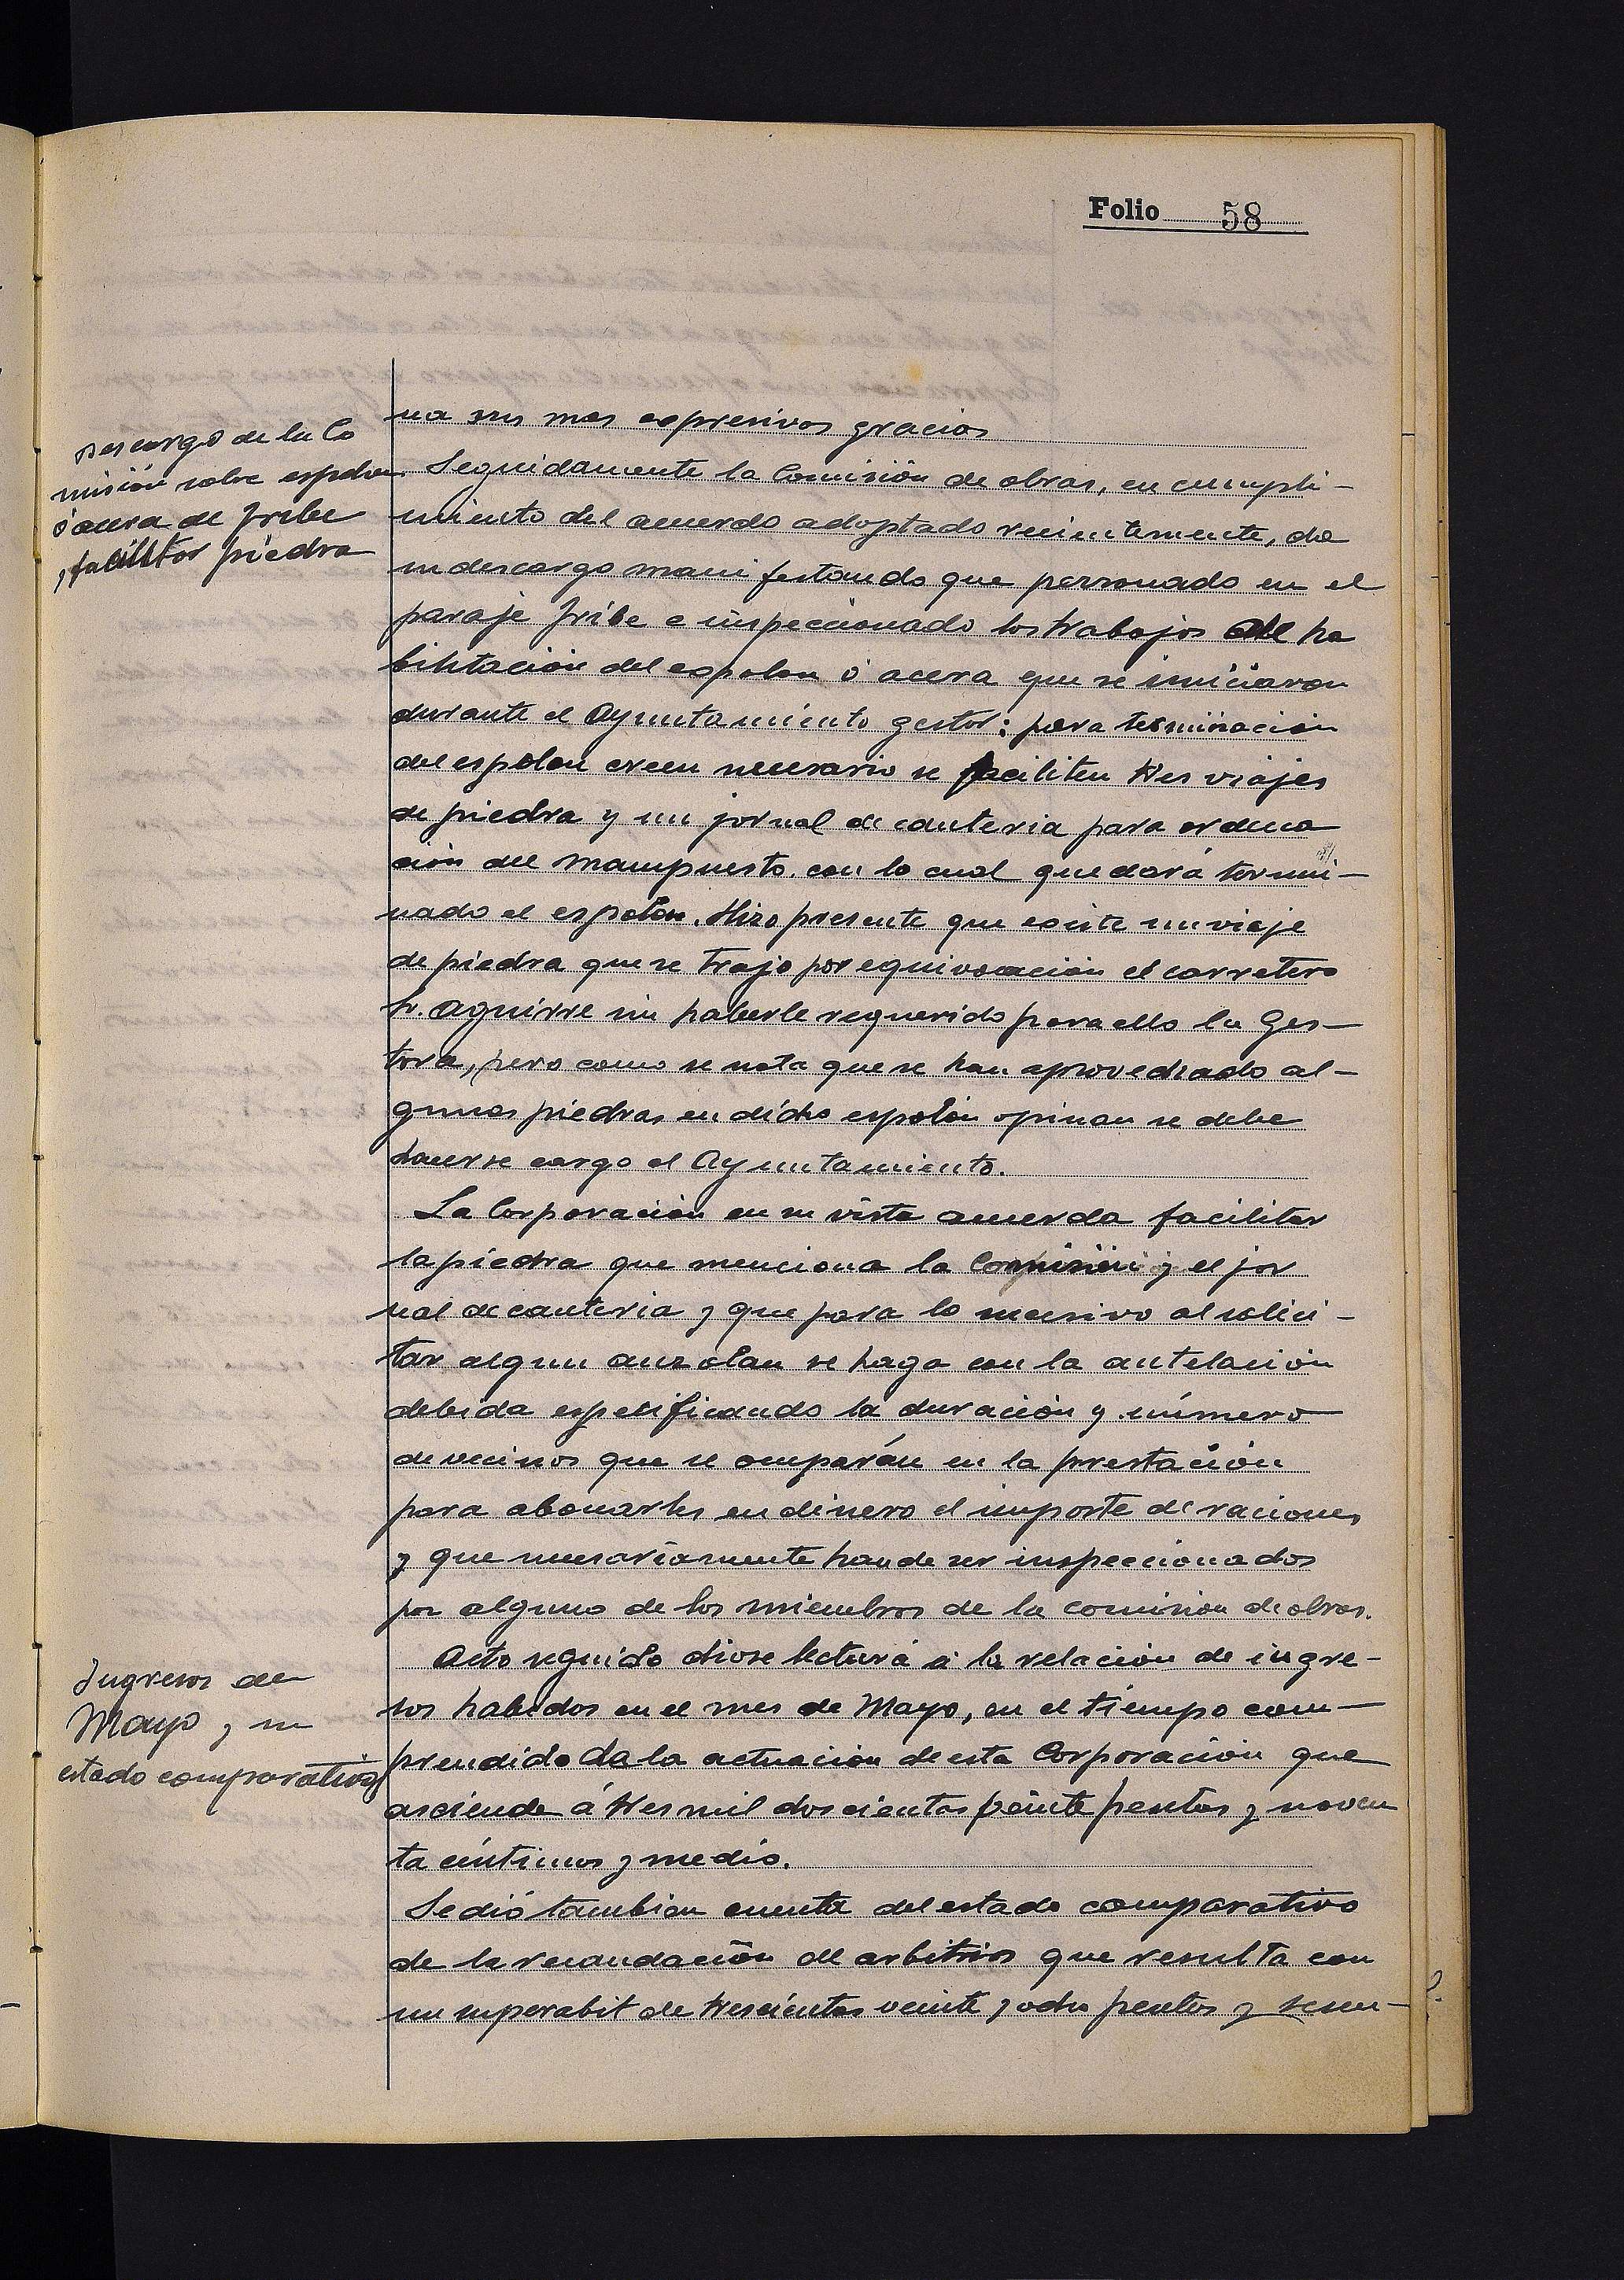 Folio 58
na sus mas expresivas gracias
Descargo de la Co
misión sobre espolon
ó acera de Iribe
y facilitar piedra
Seguidamente la Comisión de obras, en cumpli-
miento del acuerdo adoptado recientemente, da
su descargo manifestando que personado en el
paraje Iribe e inspeccionado los trabajos de ha
bilitación del espolon ó acera que se iniciaron
durante el Ayuntamiento gestor: para terminación
del espolon creen necesario se faciliten tres viajes
de piedra y un jornal de canteria para ordena
ción del mampuesto con lo cual quedará termi-
nado el espolón. Hizo presente que existe un viaje
de piedra que se trajo por equivocación el carretero
Sr. Aguirre sin haberle requerido para ello la Ges-
tora, pero como se nota que se han aprovechado al-
gunas piedras en dicho espolón opinan se debe
hacerse cargo el Ayuntamiento.
La Corporación en su vista acuerda facilitar
la piedra que menciona la Comisión y el jor
nal de canteria y que para lo sucesivo al solici-
tar algun auzolan se haga con la antelación
debida espesificando la duración y número
de vecinos que se ocuparán en la prestación
para abonarles en dinero el importe de raciones
y que necesariamente han de ser inspeccionados
por alguno de los miembros de la comision de obras.
Ingresos de
Mayo y su
estado comparativo
Acto seguido diose lectura á la relación de ingre-
sos habidos en el mes de Mayo, en el tiempo com-
prendido de la actuación de esta Corporación que
asciende á tres mil doscientas veinte pesetas y noven
ta céntimos y medio.
Se dió tambien cuenta del estado comparativo
de la recaudación de arbitrios que resulta con
un superabit de trescientas veinte y ocho pesetas y sesen-